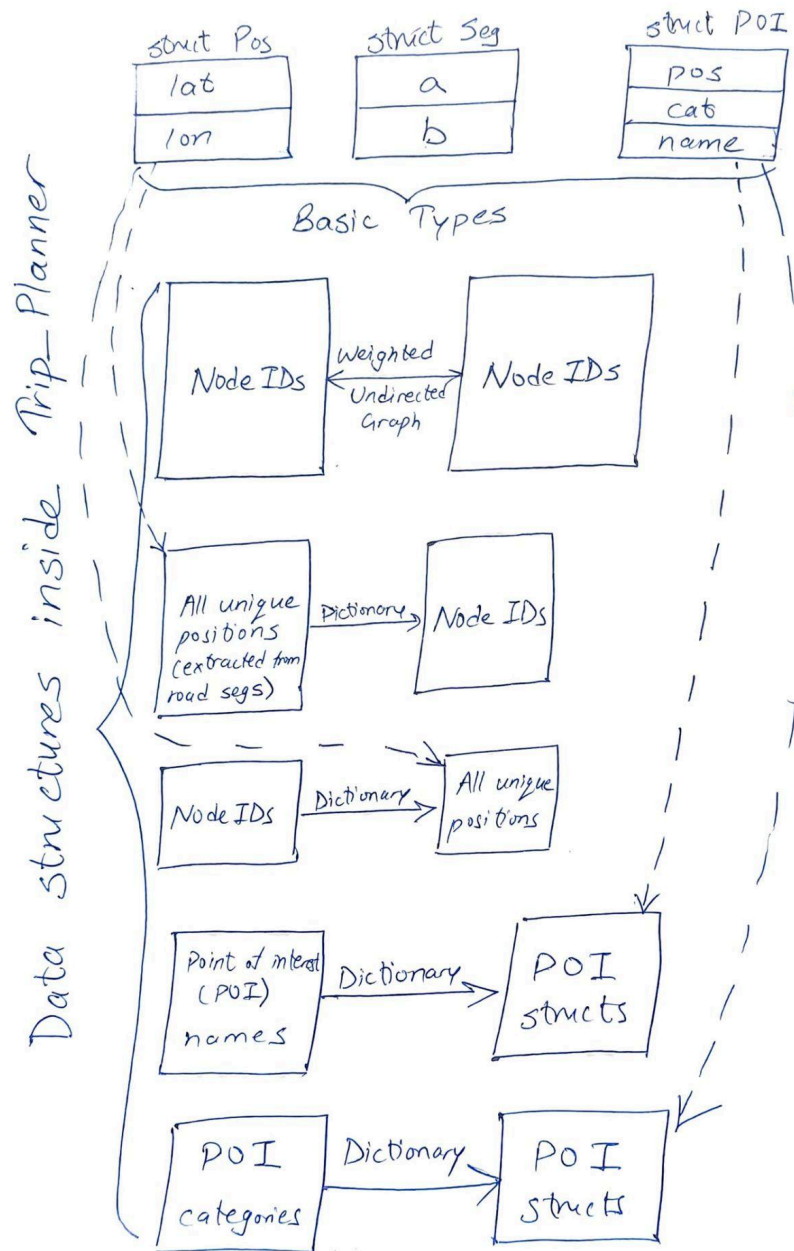 struct Pos
lat
lon
struct Seg
a
b
struct POI
pos
cat
name
Basic Types
Data structures inside Trip_Planner
Node IDs
Weighted
Undirected
Graph
Node IDs
All unique
positions
(extracted from
road segs)
Dictionary
Node IDs
Node IDs
Dictionary
All unique
positions
Point of interest
(POI)
names
Dictionary
POI
structs
POI
categories
Dictionary
POI
structs